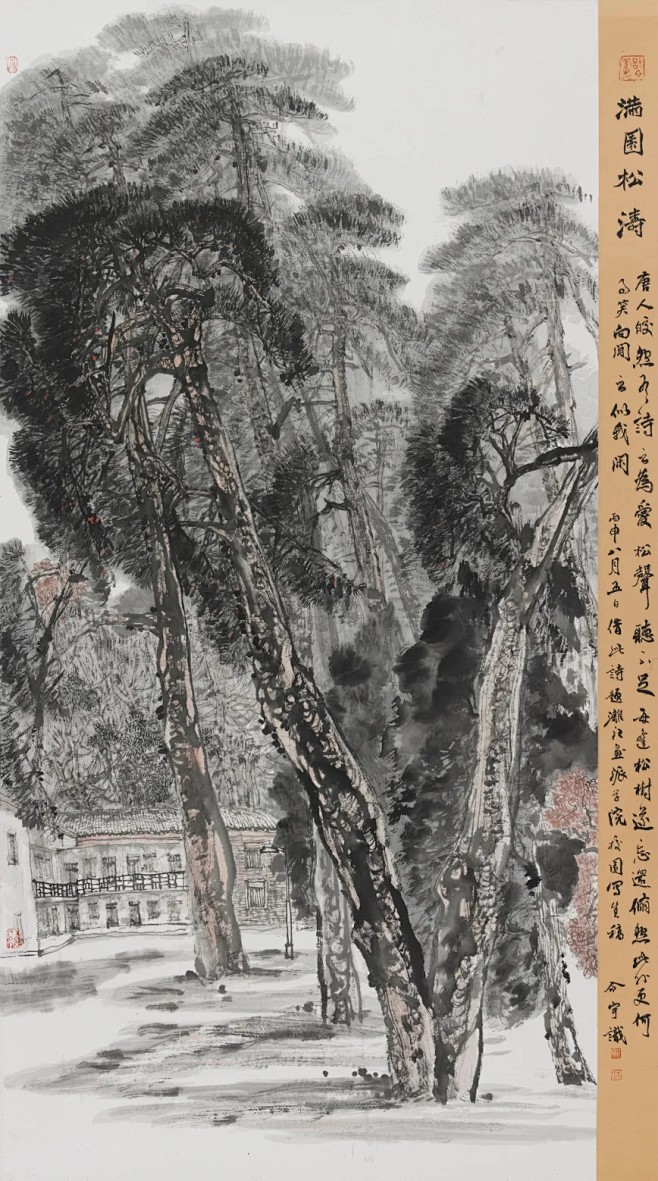 满園松濤
唐人皎然有詩云為愛松聲聽不足每逢松樹遂忘還翛然此外更何
事笑向閒云似我閑
丙申八月五日借此詩題灕江画派学院校園写生稿
宇識